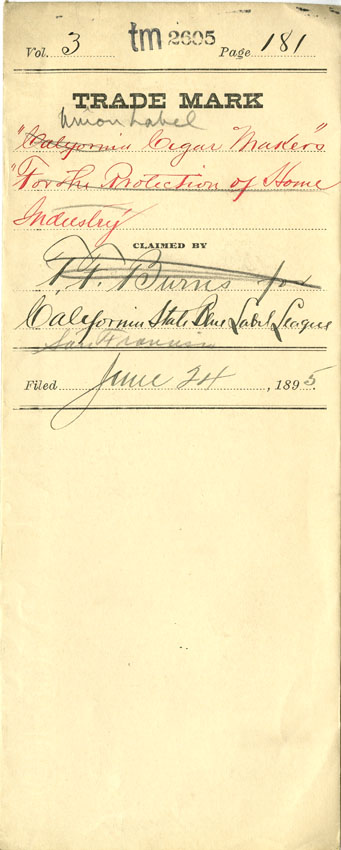 Vol. 3 tm 2605 Page 181
TRADE MARK
Union Label
"California Cigar Makers"
"For the Protection of Home
Industry"
CLAIMED BY
F. F. Burns for
California State Blue Label League
San Francisco
Filed June 24, 1895.